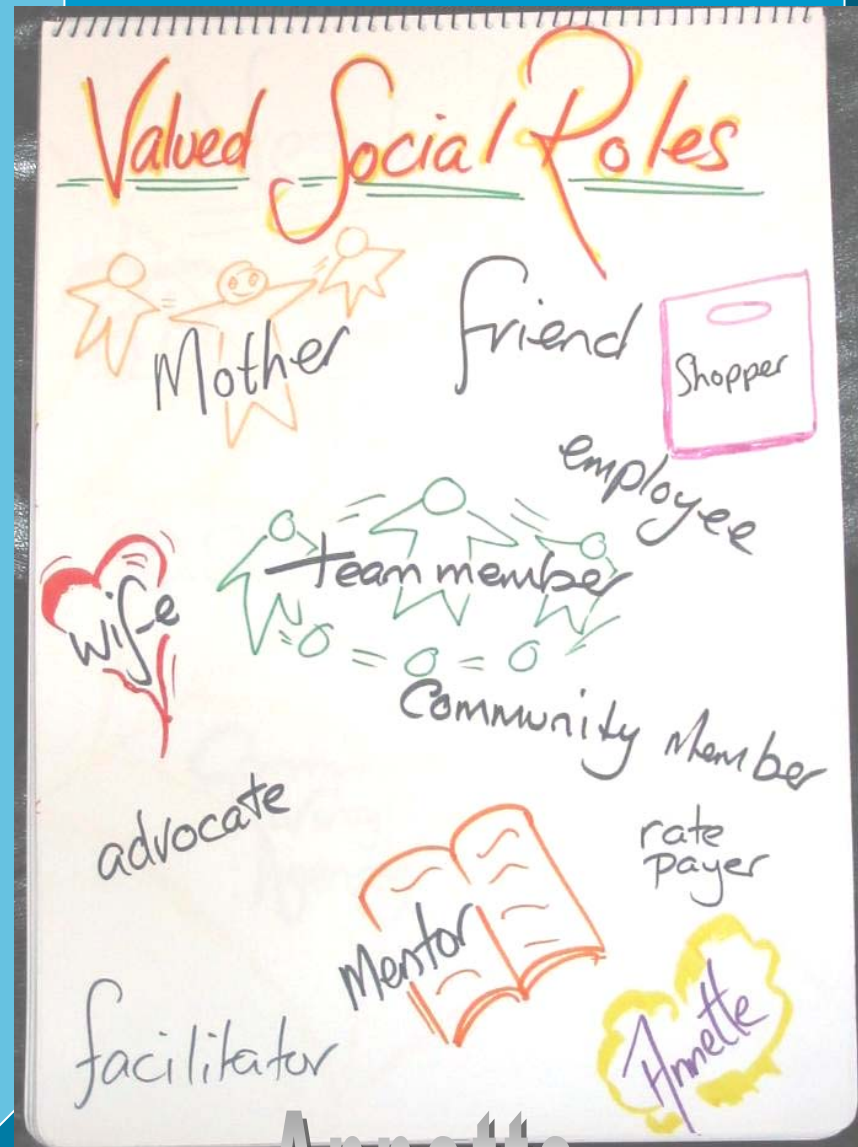 Valued Social Roles
Mother
friend
Shopper
employee
wife
team member
Community Member
advocate
rate
payer
Mentor
facilitator
Annette
Annette